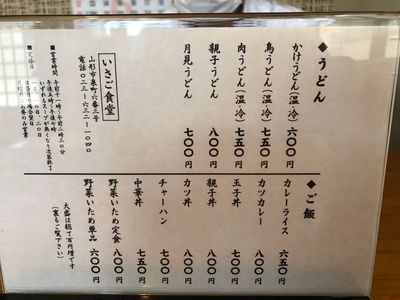 ◆うどん
かけうどん(温・冷) 六〇〇円
鳥うどん(温・冷) 七五〇円
肉うどん(温・冷) 七五〇円
親子うどん 八〇〇円
月見うどん 七〇〇円
いさご食堂
山形市泉町六番三号
電話〇二三-六三二-一〇四〇
■営業時間
■定休日
◆ご飯
カレーライス 六五〇円
カツカレー 八〇〇円
玉子丼 七〇〇円
親子丼 八〇〇円
カツ丼 八〇〇円
チャーハン 七〇〇円
中華丼 七五〇円
野菜いため定食 八〇〇円
野菜いため単品 六〇〇円
大盛は総て百円増です
(裏もご覧下さい)